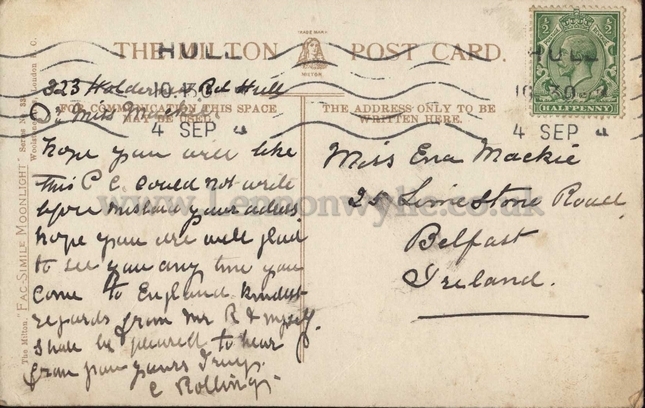 THE MILTON POST CARD.
TRADE MARK
MILTON
HULL
10.30
4 SEP
HULL
10.30
4 SEP
½ ½
HALFPENNY
FOR COMMUNICATION THIS SPACE
MAY BE USED.
THE ADDRESS ONLY TO BE
WRITTEN HERE.
The Milton, "FAC-SIMILE MOONLIGHT" Series No.
London E.C.
223 Holderness Rd Hull
Dr Miss Mackie
hope you will like
this P C. could not write
before mislaid your adres.
hope you are well glad
to see you any time you
come to England. kindest
regards from Mr R & myself.
shall be pleased to hear
from you yours Truly.
C Rollings.
Miss Ena Mackie
25 Limestone Road
Belfast
Ireland.
www.Lennonwylie.co.uk